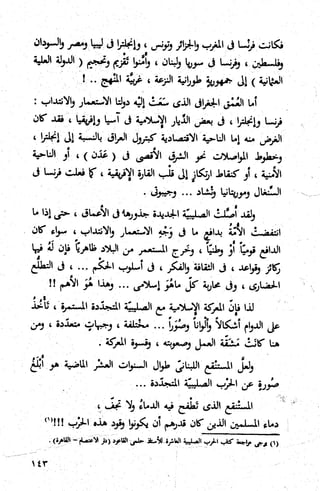 فكانت فرنسا فى المغرب والجزائر وتونس ، وإنجلترا فى ليبيا ومصر والسودان
وفلسطين ، وفرنسا فى سوريا ولبنان ، وأمنوا تقزيم وتحجيم ( الدولة العلية
العثمانية ) إلى جمهورية طورانية النزعة ، غربية المنهج .. !
أما العمق الجغرافى الذى سعت إليه دولتا الاستعمار والانتداب :
فرنسا وإنجلترا ، فى بعض الديار الإسلامية فى آسيا وإفريقيا ، فقد كان
الغرض منه إما الناحية الاقتصادية كبترول العراق بالنسبة إلى إنجلترا ،
وخطوط المواصلات نحو الشرق الأقصى فى ( عدن ) ، أو الناحية
الأمنية ، أو كنقاط ارتكاز إلى قلب القارة الإفريقية ، كما فعلت فرنسا فى
السنغال وموريتانيا وتشاد ... وجيبوتى .
ولقد أصلت الصليبية الجديدة جذورها فى الأعماق ، حتى إذا ما
انتفضت الأمة بدافع ما فى وجه الاستعمار والانتداب ، سواء كان
الدافع قوميا أو وطنيا ، وخرج المستعمر من البلاد ظاهريا فإن له فيها
ركائز وقواعد ، فى الثقافة والفكر ، فى أسلوب الحكم ... ، فى التطلع
الحضارى ، وفى محاربة كل ما هو إسلامى ... وهذا هو الأهم !!
لذا فإن المعركة الإسلامية مع الصليبية المتجددة المستمرة ، تأخذ
على الدوام أشكالا وألوانا وصورا ... مختلفة ، وجبهات متعددة ، ومن
هنا كانت مشقة العمل وصعوبته ، وقسوة المعركة .
ولعل المستنقع اللبنانى طوال السنوات العشر الماضية هو أبلغ
صورة عن الحرب الصليبية المتجددة ...
المستنقع الذى تطفح فيه الدماء ولا تجف ،
دماء المسلمين الذين كان قدرهم أن يكونوا وقود هذه الحرب !!!(١)
(١) يرجى مراجعة كتاب الحرب الصليبية العاشرة للأستاذ حلمى القاعود ( دار الاعتصام - القاهرة ) .
١٤٣